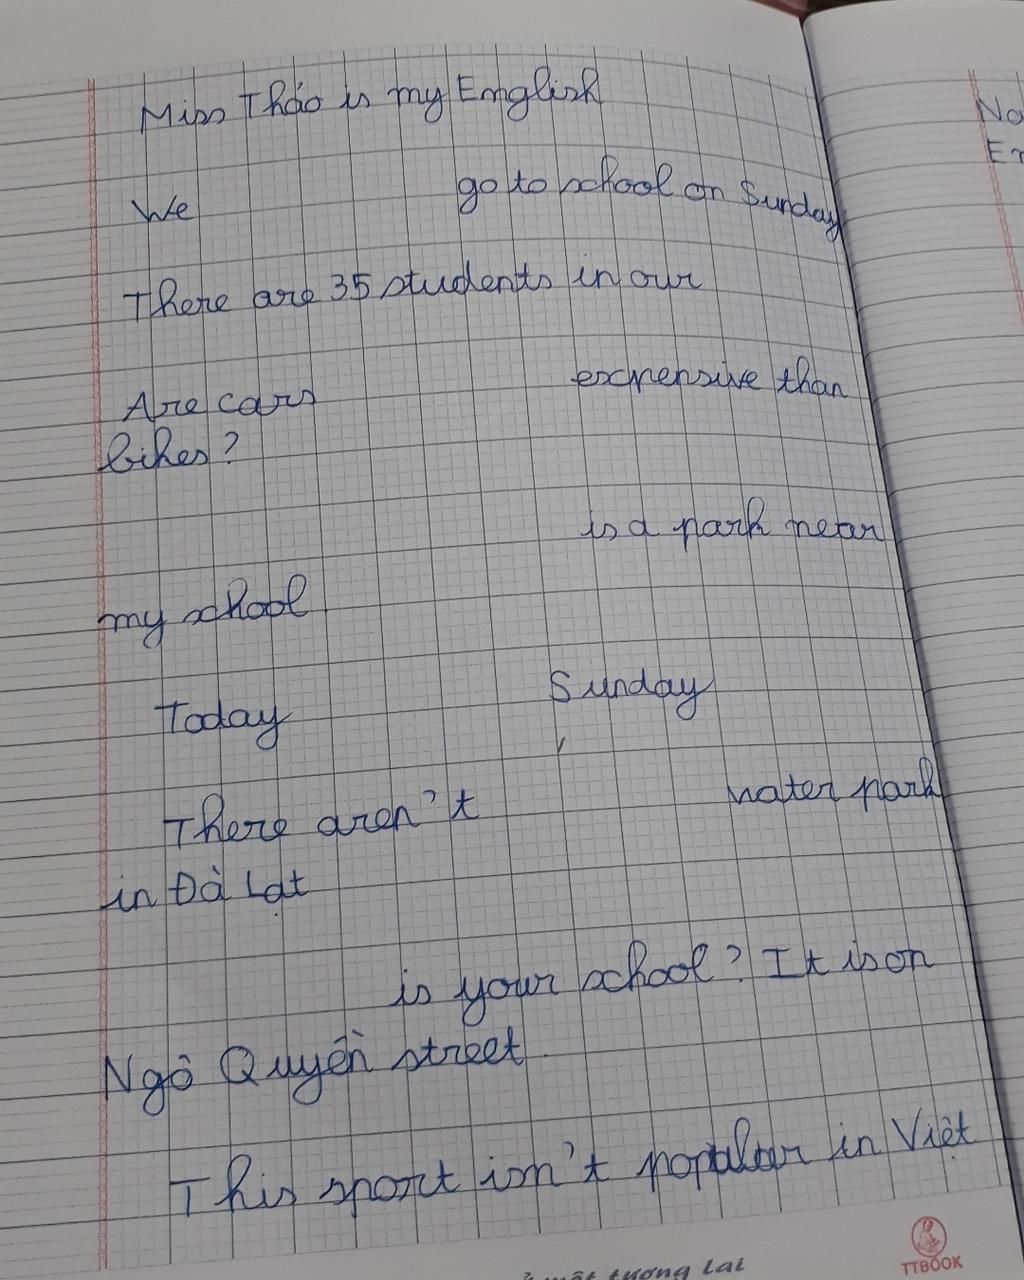 Miss Thảo is my English
We go to school on Sunday
There are 35 students in our
Are cars expensive than
bikes?
is a park near
my school
Today Sunday
There aren't water park
in Đà Lạt
is your school? It is on
Ngô Quyền street
This sport isn't popular in Việt
No
En
tương lai
TTBOOK